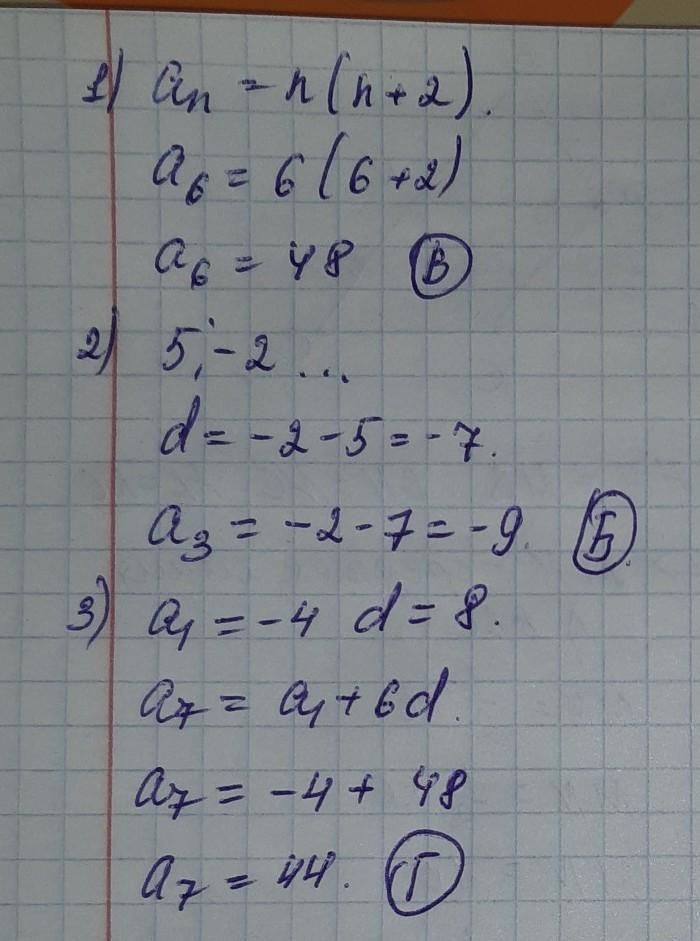 1) aₙ = n(n+2).
a₆ = 6(6+2)
a₆ = 48 В
2) 5; -2 ...
d = -2-5 = -7.
a₃ = -2-7 = -9. Б
3) a₁ = -4 d = 8.
a₇ = a₁ + 6d.
a₇ = -4 + 48
a₇ = 44. Г